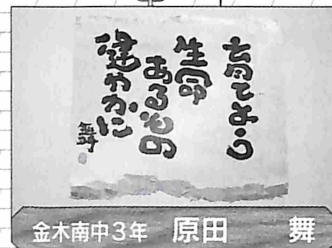 育てよう
生命
あるもの
健やかに
舞
金木南中3年 原田 舞